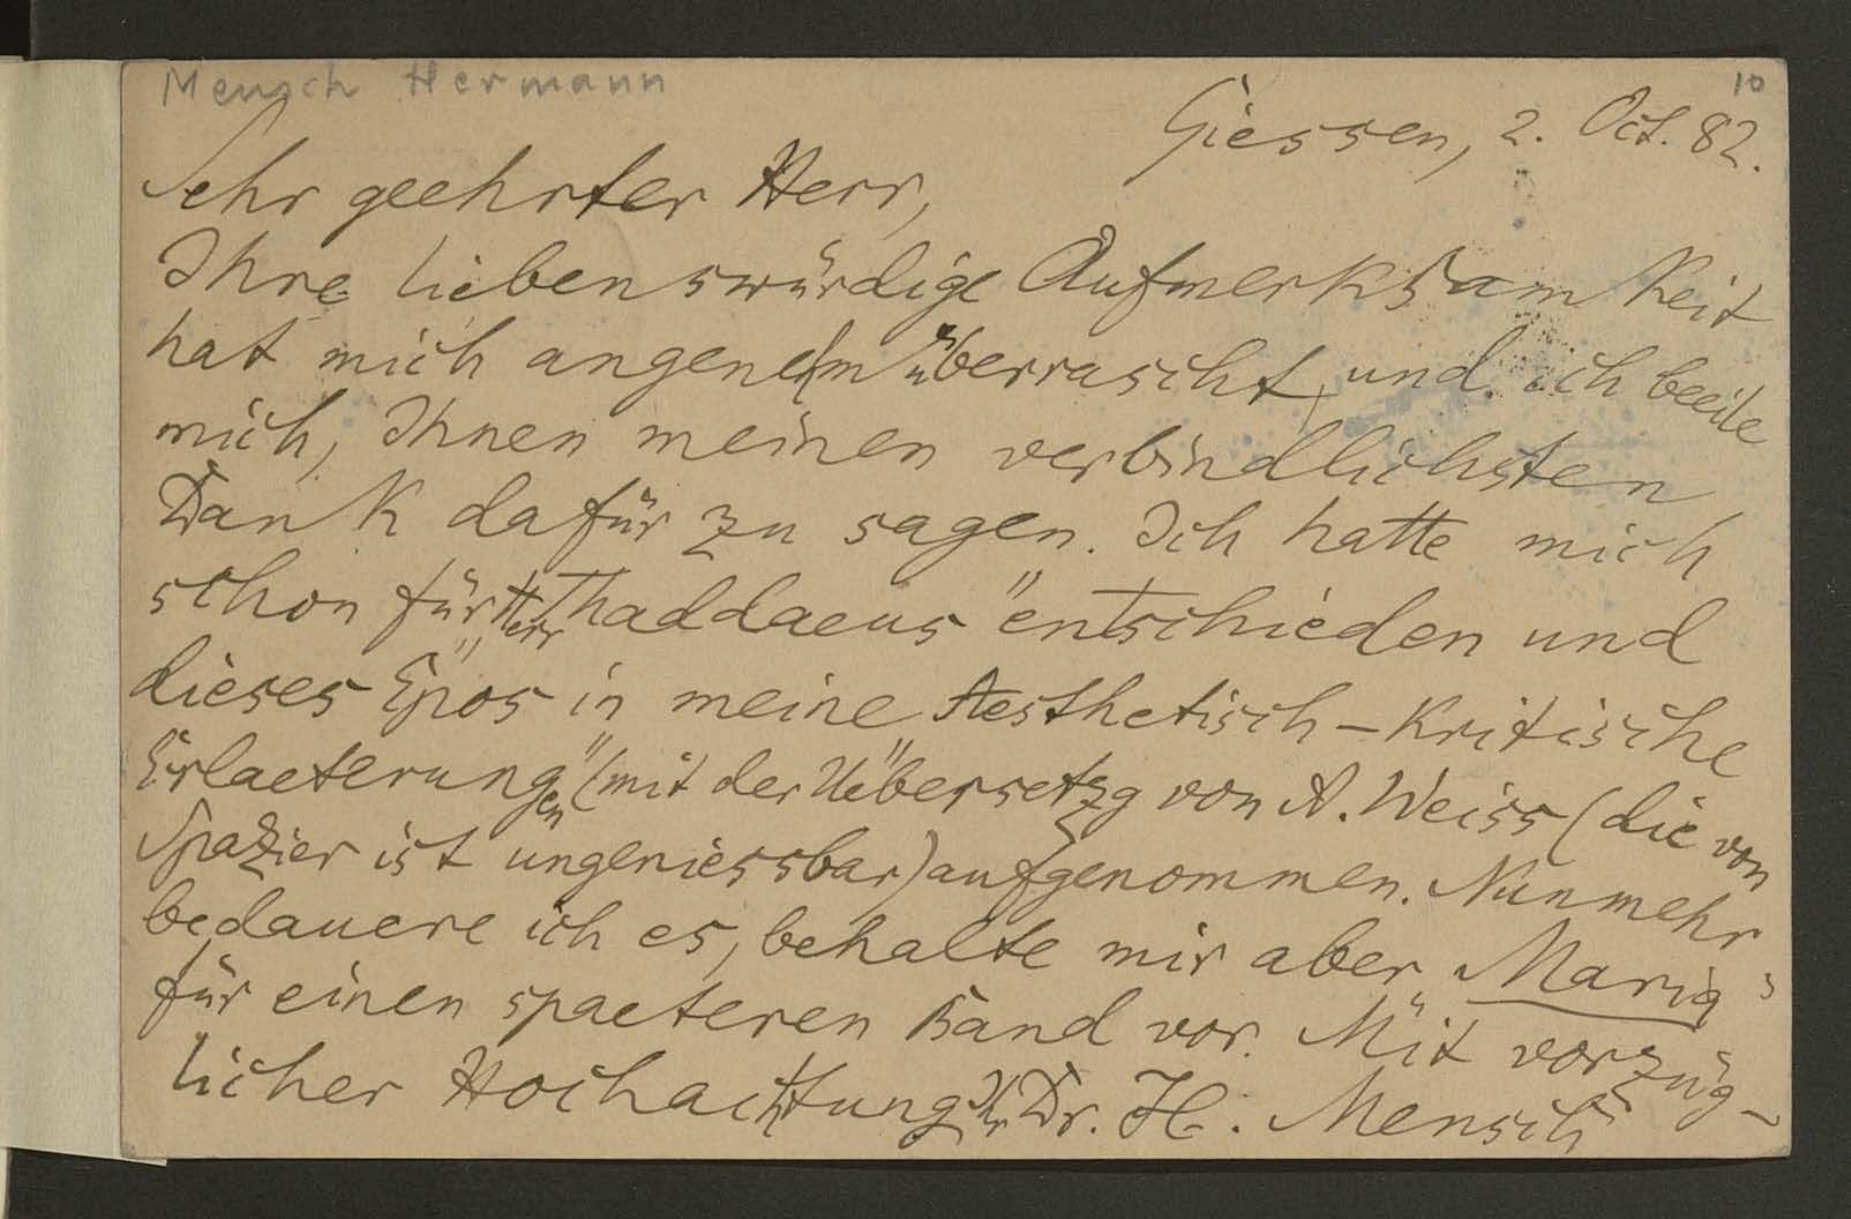 Mensch Hermann
10
Giessen, 2. Oct. 82.
Sehr geehrter Herr,
Ihre liebenswürdige Aufmerksamkeit
hat mich angenehm überrascht, und ich beeile
mich, Ihnen meinen verbindlichsten
Dank dafür zu sagen. Ich hatte mich
schon für „Herr Thaddaeus" entschieden und
dieses Epos in meine „Aesthetisch-Kritische
Erlaeterungen" (mit der Uebersetzg von A. Weiss (die von
Spazier ist ungeniessbar) aufgenommen. Nunmehr
bedauere ich es, behalte mir aber „Maria"
für einen spaeteren Band vor. Mit vorzüg-
licher Hochachtung Ihr Dr. H. Mensch